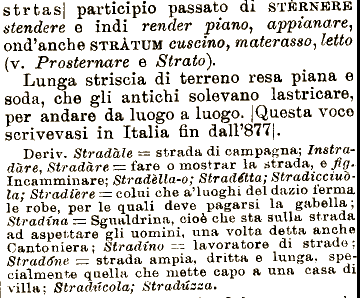 strtas| participio passato di STÈRNERE
stendere e indi render piano, appianare,
ond'anche STRÀTUM cuscino, materasso, letto
(v. Prosternare e Strato).
Lunga striscia di terreno resa piana e
soda, che gli antichi solevano lastricare,
per andare da luogo a luogo. |Questa voce
scrivevasi in Italia fin dall'877|.
Deriv. Stradàle = strada di campagna; Instra-
dàre, Stradàre = fare o mostrar la strada, e fig.
Incamminare; Stradèlla-o; Stradétta; Stradicciuò-
la; Stradière = colui che a'luoghi del dazio ferma
le robe, per le quali deve pagarsi la gabella;
Stradina = Sgualdrina, cioè che sta sulla strada
ad aspettare gli uomini, una volta detta anche
Cantoniera; Stradino = lavoratore di strade;
Stradóne = strada ampia, dritta e lunga, spe-
cialmente quella che mette capo a una casa di
villa; Stradúcola; Stradúzza.